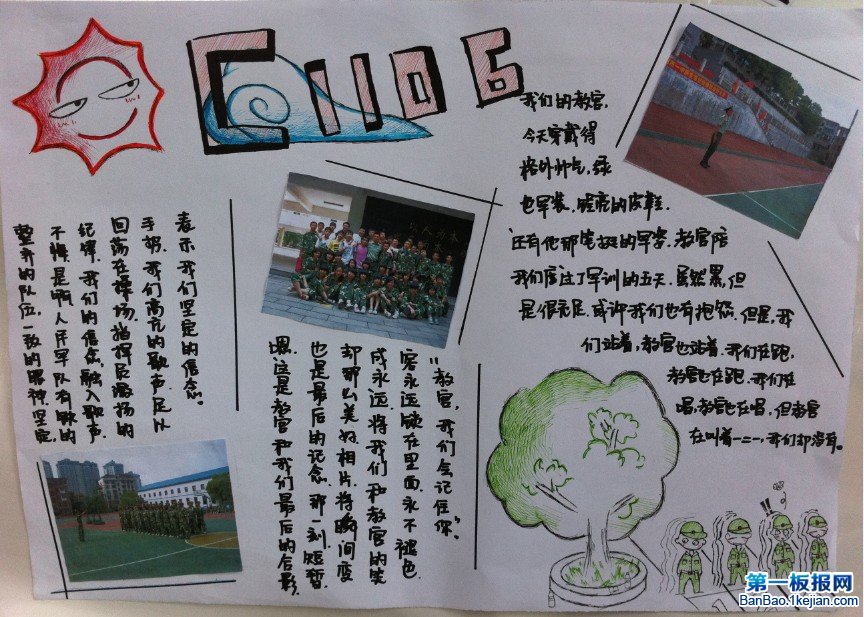 C1106
整齐的队伍,一致的眼神.坚定,
不愧是 人民军队有 的
纪律.我们的信念,融入歌声.
回荡在操场.指挥员激扬的
手势.我们高亢的歌声.足以
表示我们坚定的信念。
这是教官和我们最后的合影,
也是最后的记念.那一刻.短暂
却那么美好.相片.将瞬间变
成永远.将我们和教官的笑
容永远锁在里面.永不褪色.
"教官,我们会记住你"。
我们的教官,
今天穿戴得
格外帅气,绿
色军装, 亮的皮鞋.
还有他那笔挺的军姿.教官陪
我们度过了军训的五天.虽然累,但
是很充足.或许我们也有抱怨.但是,我
们站着,教官也站着.我们在跑,
教官也在跑.我们在
唱,教官也在唱.但教官
在叫着一二一,我们却没有。
!!
第一板报网
BanBao.1kejian.com